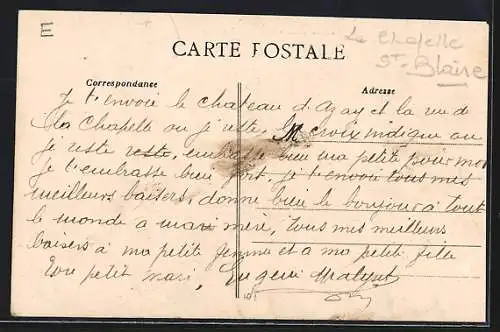 E
La Chapelle
St-Blaise
CARTE POSTALE
Correspondance
Adresse
Je t'envoie le chateau d'Azay et la vue de
la Chapelle ou je reste, la croix indique ou
je reste reste, embrasse bien ma petite pour moi
Je t'embrasse bien fort, je t'envoie tous mes
meilleurs baisers, donne bien le bonjour à tout
le monde a mere, tous mes meilleurs
baisers à ma petite femme et a ma petit fille
Ton petit mari, Eugene